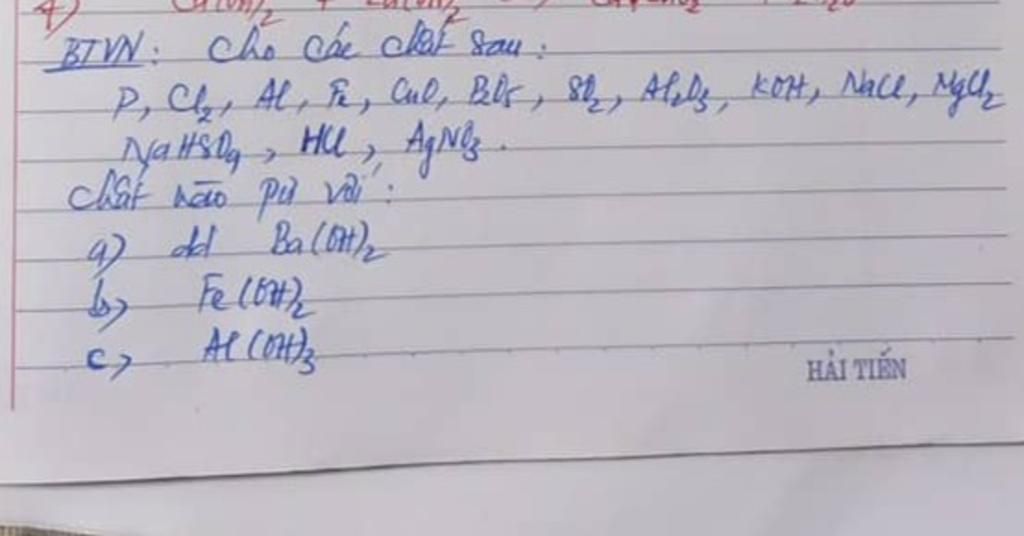 4) Ca(OH)2
BTVN: Cho các chất sau:
P, Cl2, Al, Fe, CuO, P2O5, SO2, Al2O3, KOH, NaCl, MgCl2
NaHSO4, HCl, AgNO3.
Chất nào pứ với:
a) dd Ba(OH)2
b) Fe(OH)2
c) Al(OH)3
HẢI TIẾN